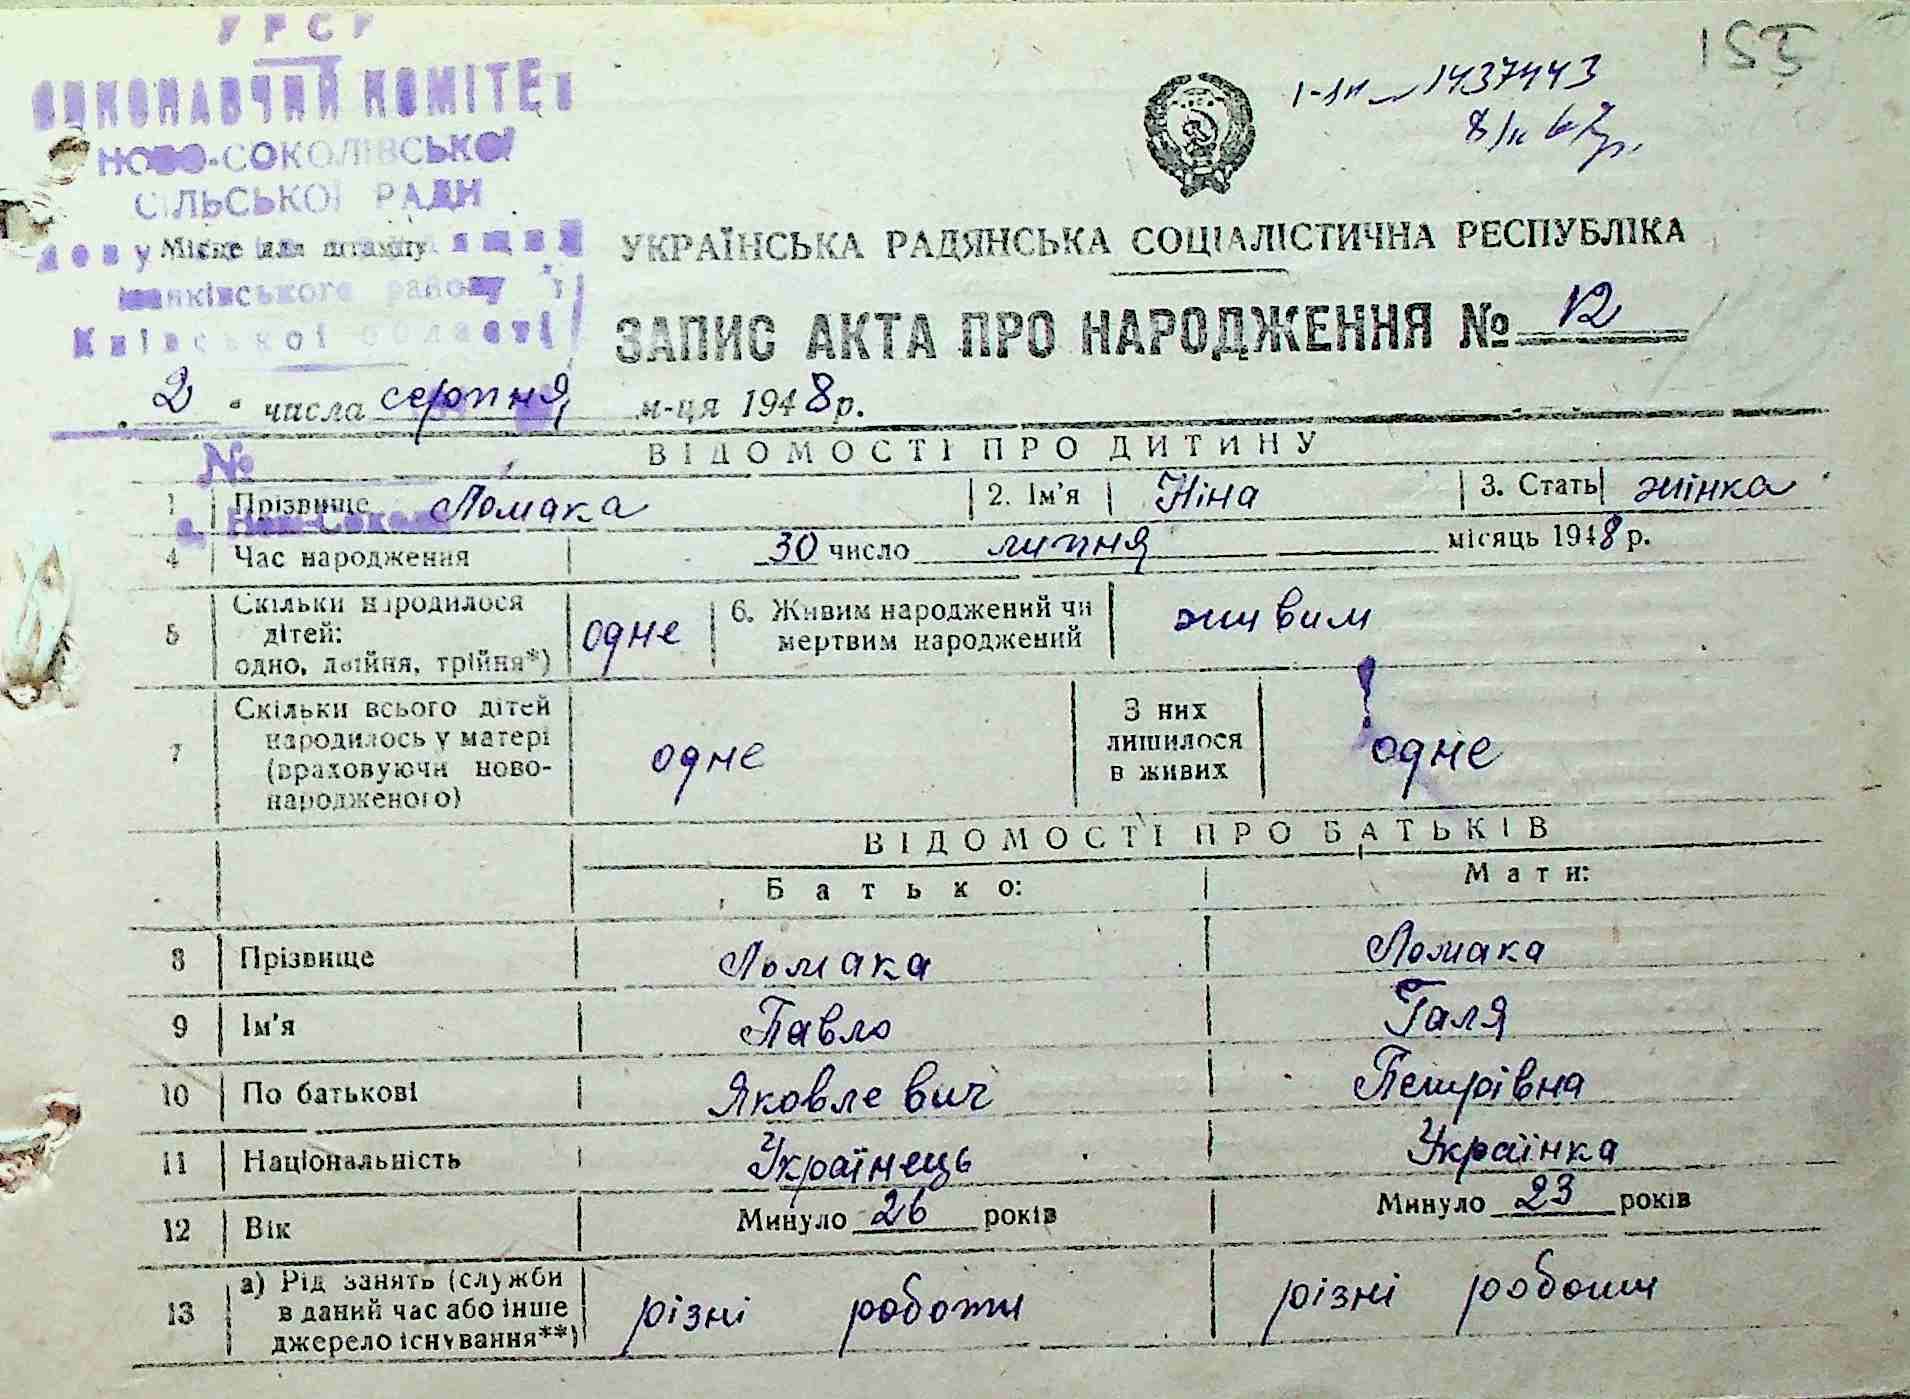 УРСР
ВИКОНАВЧИЙ КОМІТЕТ
НОВО-СОКОЛІВСЬКОЇ
СІЛЬСЬКОЇ РАДИ
Місце для штампу
району
Київської області
155
1437443
УКРАЇНСЬКА РАДЯНСЬКА СОЦІАЛІСТИЧНА РЕСПУБЛІКА
ЗАПИС АКТА ПРО НАРОДЖЕННЯ № 12
„2" числа серпня м-ця 1948 р.
№
ВІДОМОСТІ ПРО ДИТИНУ
1 Прізвище Ломака 2. Ім'я Ніна 3. Стать жінка
4 Час народження 30 число липня місяць 1948 р.
5 Скільки народилося дітей: одно, двійня, трійня*) одне 6. Живим народжений чи мертвим народжений живим
7 Скільки всього дітей народилось у матері (враховуючи ново-народженого) одне З них лишилося в живих одне
ВІДОМОСТІ ПРО БАТЬКІВ
Батько: Мати:
8 Прізвище Ломака Ломака
9 Ім'я Павло Галя
10 По батькові Яковлевич Петрівна
11 Національність Українець Українка
12 Вік Минуло 26 років Минуло 23 років
13 а) Рід занять (служби в даний час або інше джерело існування**) різні роботи різні роботи